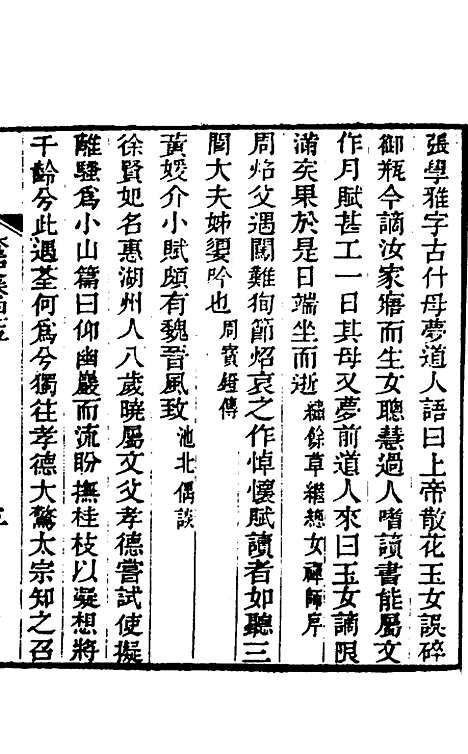 張學雅字古什母夢道人語曰上帝散花玉女誤碎
御瓶今謫汝家寤而生女聰慧過人嗜讀書能屬文
作月賦甚工一日其母又夢前道人來曰玉女謫限
滿矣果於是日端坐而逝繡餘草繼總女禪師序
周焰父遇闖難狥節焰哀之作悼懷賦讀者如聽三
閭大夫姊嬃吟也周寶鐙傳
黃媛介小賦頗有魏晉風致池北偶談
徐賢妃名惠湖州人八歲曉屬文父孝德嘗試使擬
離騷爲小山篇曰仰幽巖而流盼撫桂枝以凝想將
千齡兮此遇荃何爲兮獨往孝德大驚太宗知之召